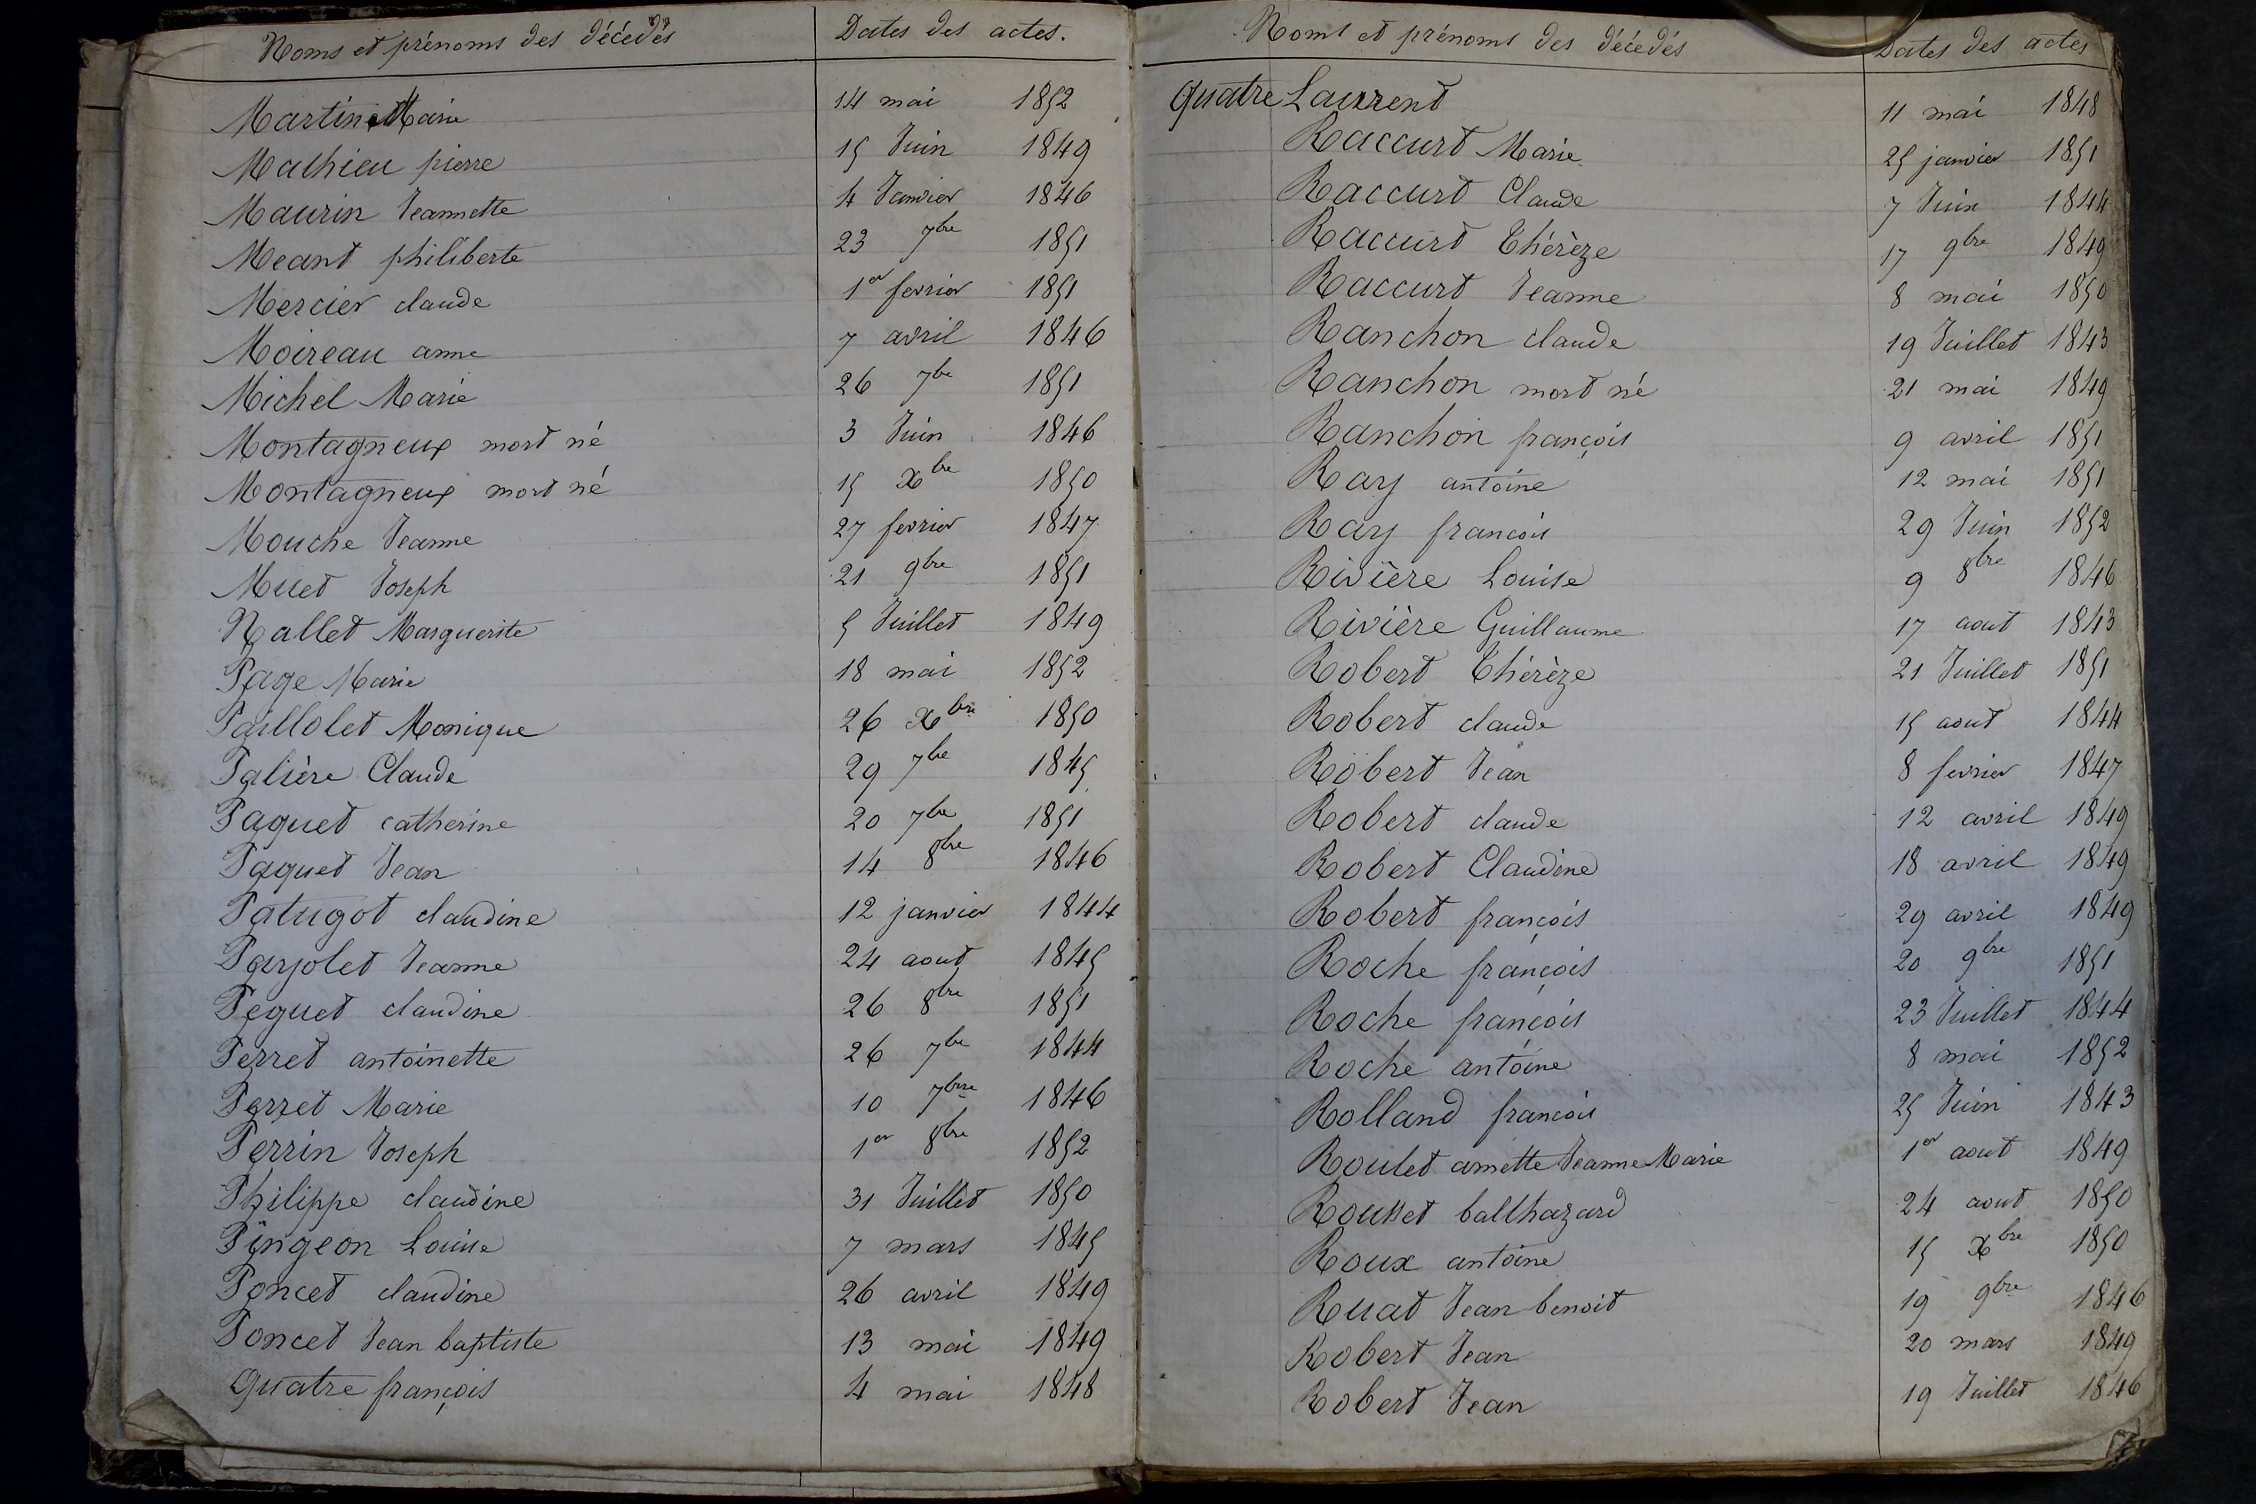 Noms et prénoms des décédés Dates des actes.
Martin Marie 14 mai 1852
Mathieu pierre 15 Juin 1849
Maurin Jeannette 4 Janvier 1846
Meant philiberte 23 7bre 1851
Mercier claude 1er fevrier 1851
Moireau anne 7 avril 1846
Michel Marie 26 7bre 1851
Montagneux mort né 3 Juin 1846
Montagneux mort né 15 Xbre 1850
Mouche Jeanne 27 fevrier 1847
Muet Joseph 21 9bre 1851
Nallet Marguerite 5 Juillet 1849
Page Marie 18 mai 1852
Paillolet Monique 26 Xbre 1850
Palière Claude 29 7bre 1845
Paquet catherine 20 7bre 1851
Paquet Jean 14 8bre 1846
Patugot claudine 12 janvier 1844
Payolet Jeanne 24 aout 1845
Peguet claudine 26 8bre 1851
Perret antoinette 26 7bre 1844
Perret Marie 10 7bre 1846
Perrin Joseph 1er 8bre 1852
Philippe claudine 31 Juillet 1850
Pingeon Louise 7 mars 1845
Poncet claudine 26 avril 1849
Poncet Jean baptiste 13 mai 1849
Quatre françois 4 mai 1848
Noms et prénoms des décédés Dates des actes
Quatre Laurent 11 mai 1848
Raccurt Marie 25 janvier 1851
Raccurt Claude 7 Juin 1844
Raccurt Thérèze 17 9bre 1849
Raccurt Jeanne 8 mai 1850
Ranchon claude 19 Juillet 1843
Ranchon mort né 21 mai 1849
Ranchon françois 9 avril 1851
Ray antoine 12 mai 1851
Ray francois 29 Juin 1852
Rivière Louise 9 8bre 1846
Rivière Guillaume 17 aout 1843
Robert Thérèze 21 Juillet 1851
Robert claude 15 aout 1844
Robert Jean 8 fevrier 1847
Robert claude 12 avril 1849
Robert Claudine 18 avril 1849
Robert françois 29 avril 1849
Roche françois 20 9bre 1851
Roche françois 23 Juillet 1844
Roche antoine 8 mai 1852
Rolland francois 25 Juin 1843
Roulet annette Jeanne Marie 1er aout 1849
Rousset balthazard 24 aout 1850
Roux antoine 15 Xbre 1850
Ruat Jean benoit 19 9bre 1846
Robert Jean 20 mars 1849
Robert Jean 19 Juillet 1846